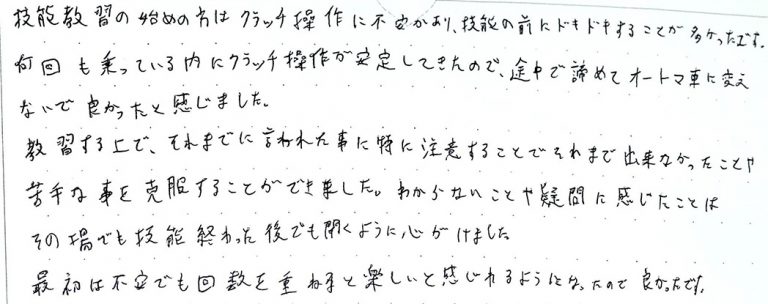 技能教習の始めの方はクラッチ操作に不安があり、技能の前にドキドキすることが多かったです。
何回も乗っている内にクラッチ操作が安定してきたので、途中で諦めてオートマ車に変え
ないで良かったと感じました。
教習する上で、それまでに言われた事に特に注意することでそれまで出来なかったことや
苦手な事を克服することができました。わからないことや疑問に感じたことは
その場でも技能終わった後でも聞くように心がけました
最初は不安でも回数を重ねると楽しいと感じれるようになったので良かったです。